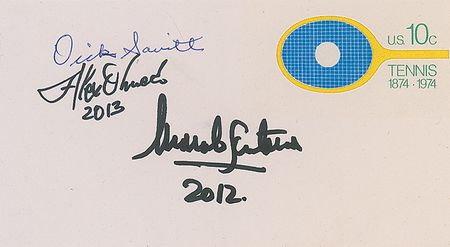 Dick Savitt
Alex Olmedo
2013
Manolo Santana
2012.
U.S. 10c
TENNIS
1874 · 1974